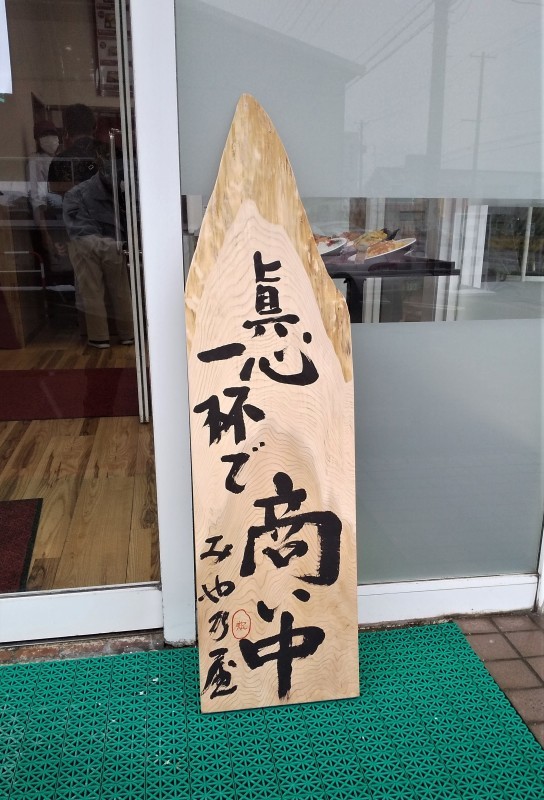 眞心
一杯で
商い中
みや乃屋